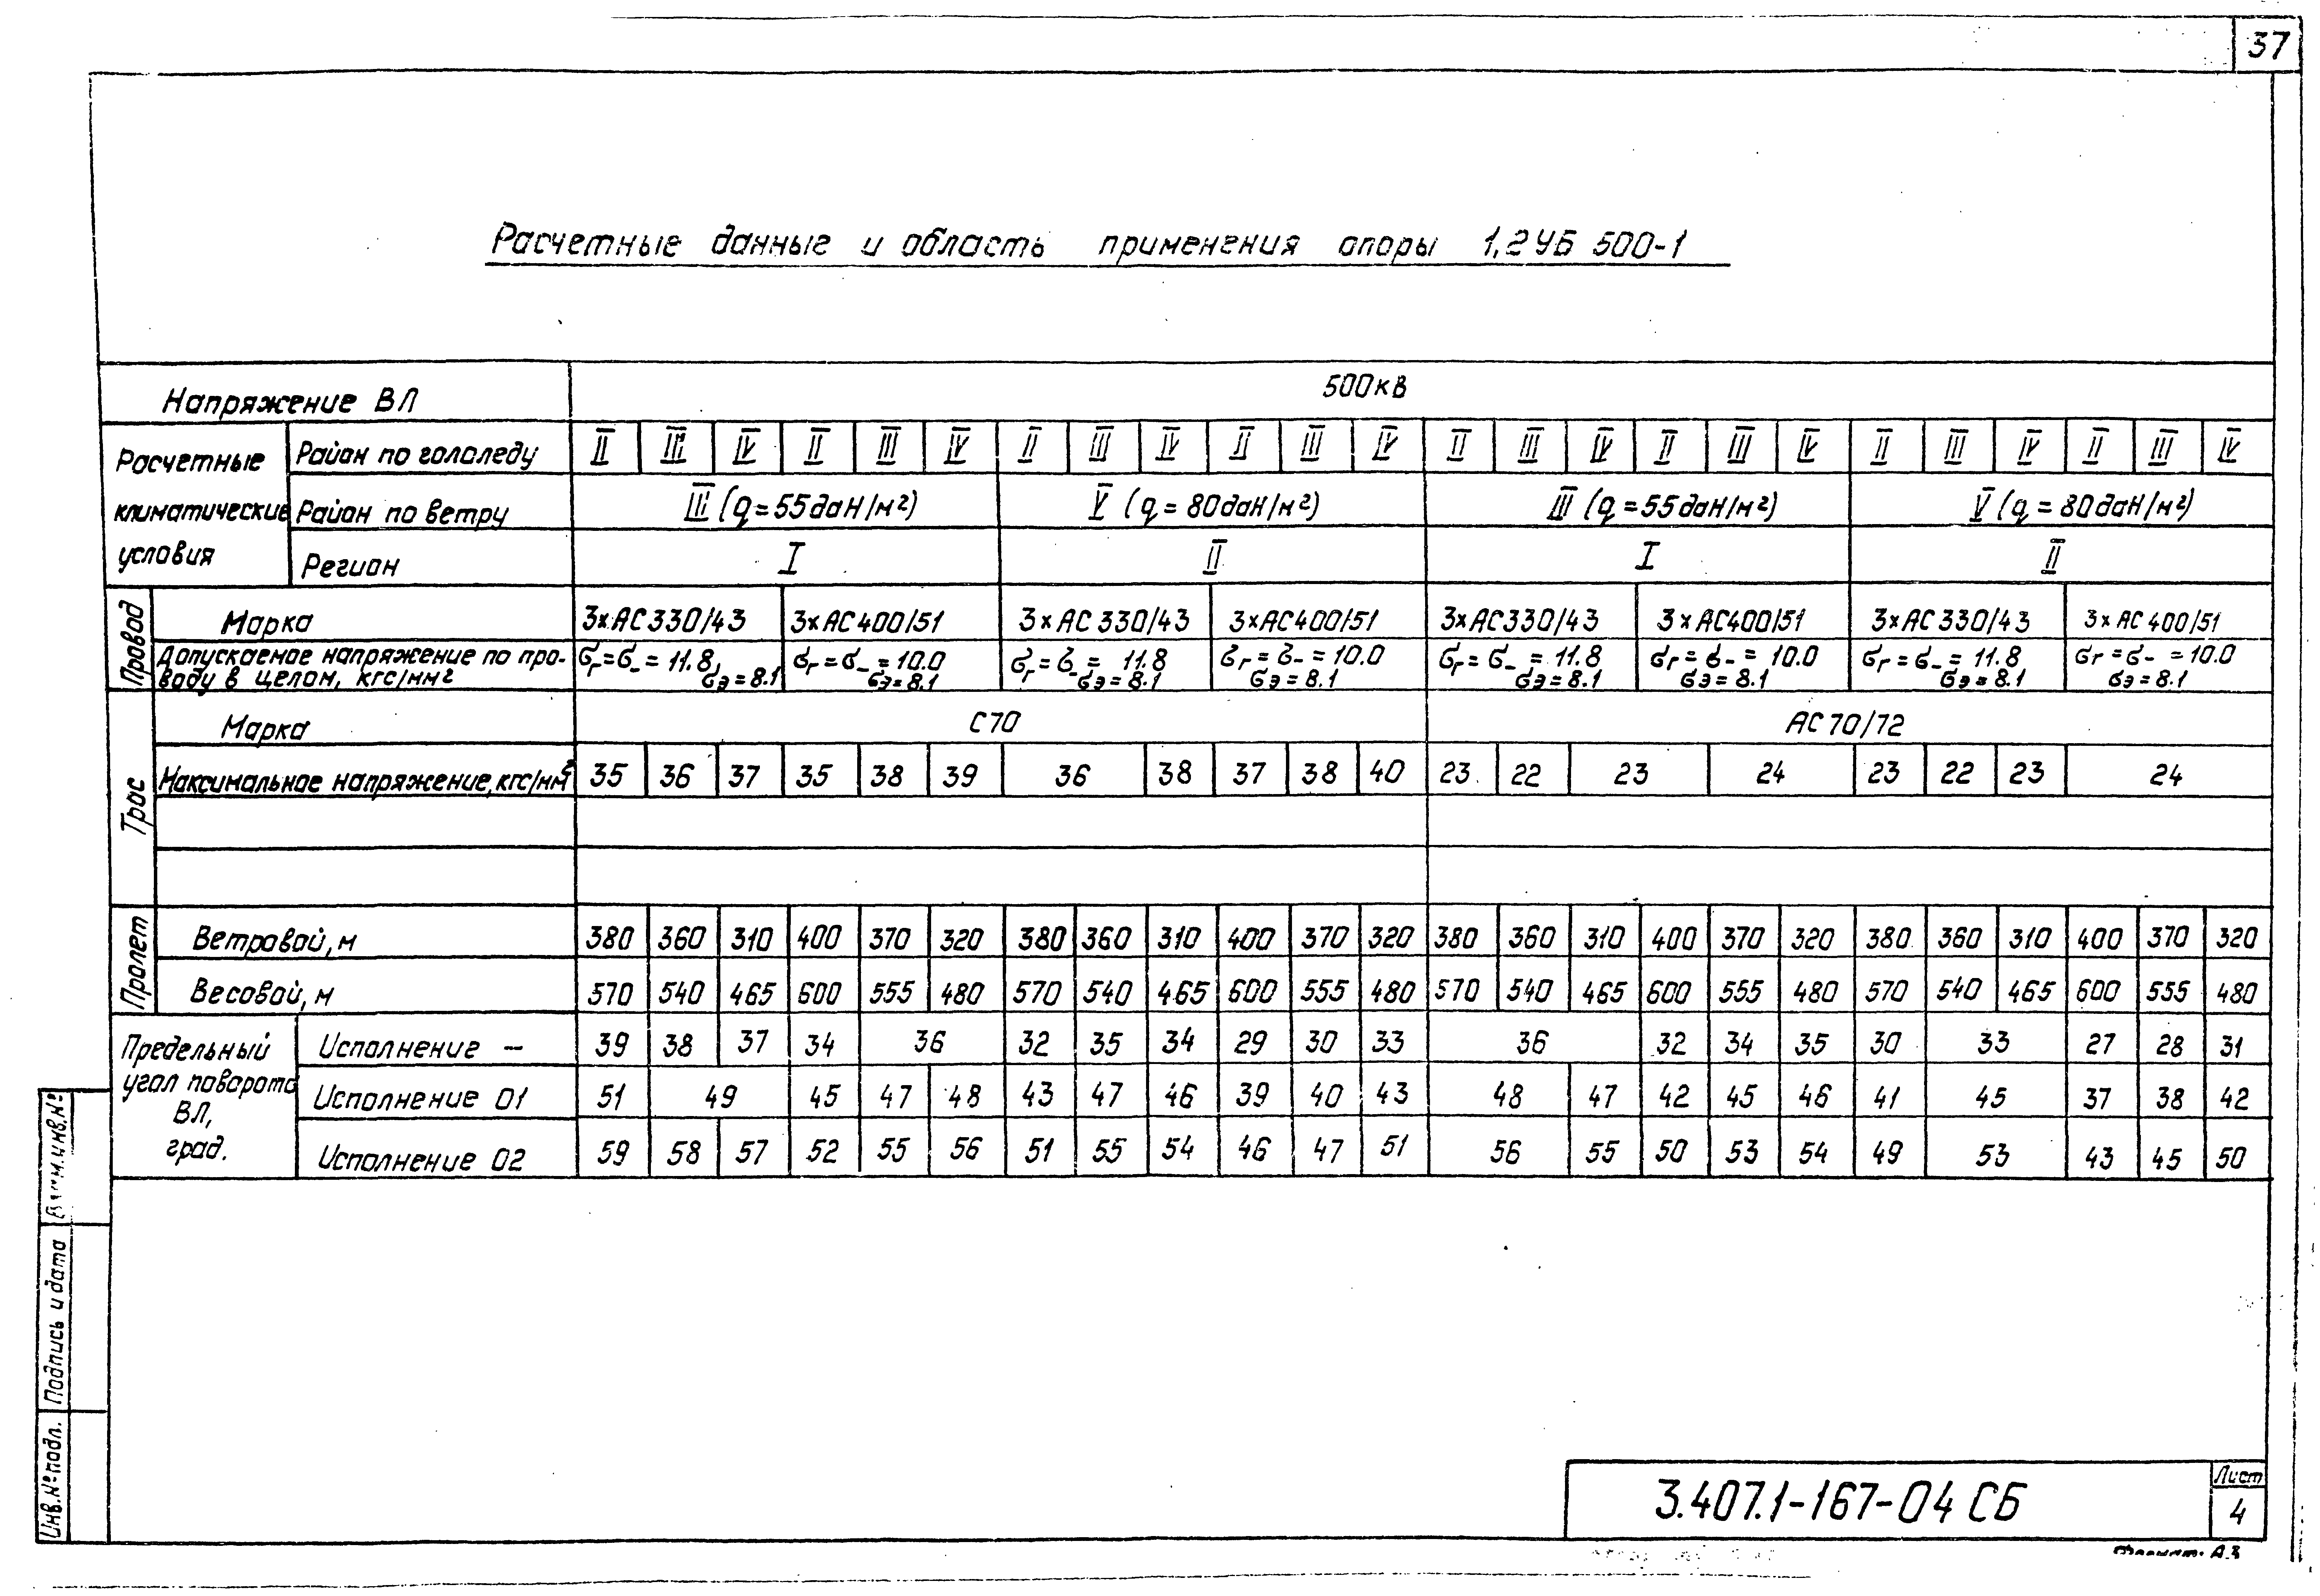 37
Расчетные данные и область применения опоры 1,2 УБ 500-1
Напряжение ВЛ 500кВ
Расчетные климатические условия
Район по гололеду II III IV II III IV II III IV II III IV II III IV II III IV II III IV II III IV
Район по ветру III (q=55даН/м²) V (q=80даН/м²) III (q=55даН/м²) V (q=80даН/м²)
Регион I II I II
Провод
Марка 3×АС330/43 3×АС400/51 3×АС330/43 3×АС400/51 3×АС330/43 3×АС400/51 3×АС330/43 3×АС400/51
Допускаемое напряжение по про- σг=σ-=11.8, σг=σ-=10.0 σг=σ-=11.8 σг=σ-=10.0 σг=σ-=11.8 σг=σ-=10.0 σг=σ-=11.8 σг=σ-=10.0
воду в целом, кгс/мм² σэ=8.1 σэ=8.1 σэ=8.1 σэ=8.1 σэ=8.1 σэ=8.1 σэ=8.1 σэ=8.1
Трос
Марка С70 АС70/72
Максимальное напряжение, кгс/мм² 35 36 37 35 38 39 36 38 37 38 40 23 22 23 24 23 22 23 24
Пролет
Ветровой, м 380 360 310 400 370 320 380 360 310 400 370 320 380 360 310 400 370 320 380 360 310 400 370 320
Весовой, м 570 540 465 600 555 480 570 540 465 600 555 480 570 540 465 600 555 480 570 540 465 600 555 480
Предельный угол поворота ВЛ, град.
Исполнение – 39 38 37 34 36 32 35 34 29 30 33 36 32 34 35 30 33 27 28 31
Исполнение 01 51 49 45 47 48 43 47 46 39 40 43 48 47 42 45 46 41 45 37 38 42
Исполнение 02 59 58 57 52 55 56 51 55 54 46 47 51 56 55 50 53 54 49 53 43 45 50
Инв.№подл. Подпись и дата Взам.инв.№
3.407.1-167-04 СБ
Лист
4
Формат А3